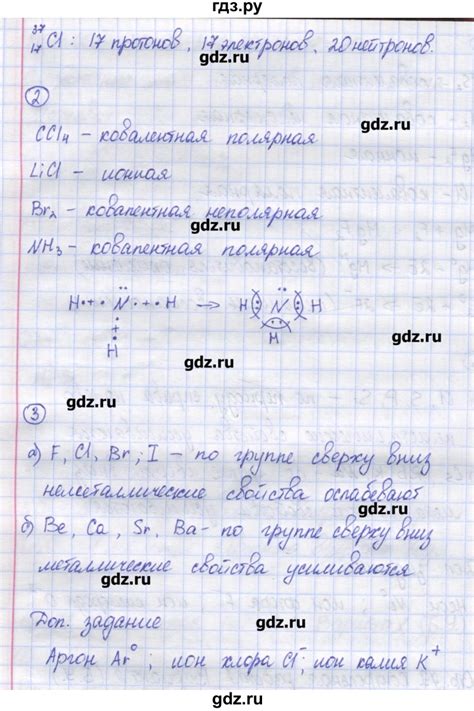 гдз.ру
³⁷₁₇Cl : 17 протонов, 17 электронов, 20 нейтронов.
gdz.ru
2
gdz.ru
CCl₄ – ковалентная полярная
LiCl – ионная
gdz.ru
Br₂ – ковалентная неполярная
NH₃ – ковалентная полярная
gdz.ru
H • + • N • + • H → H N H
+
H
H
gdz.ru
gdz.ru
3
gdz.ru
а) F, Cl, Br, I – по группе сверху вниз
неметаллические свойства ослабевают
gdz.ru
б) Be, Ca, Sr, Ba – по группе сверху вниз
gdz.ru
металлические свойства усиливаются
Доп. задание
gdz.ru
Аргон Ar⁰ ; ион хлора Cl⁻; ион калия K⁺
gdz.ru